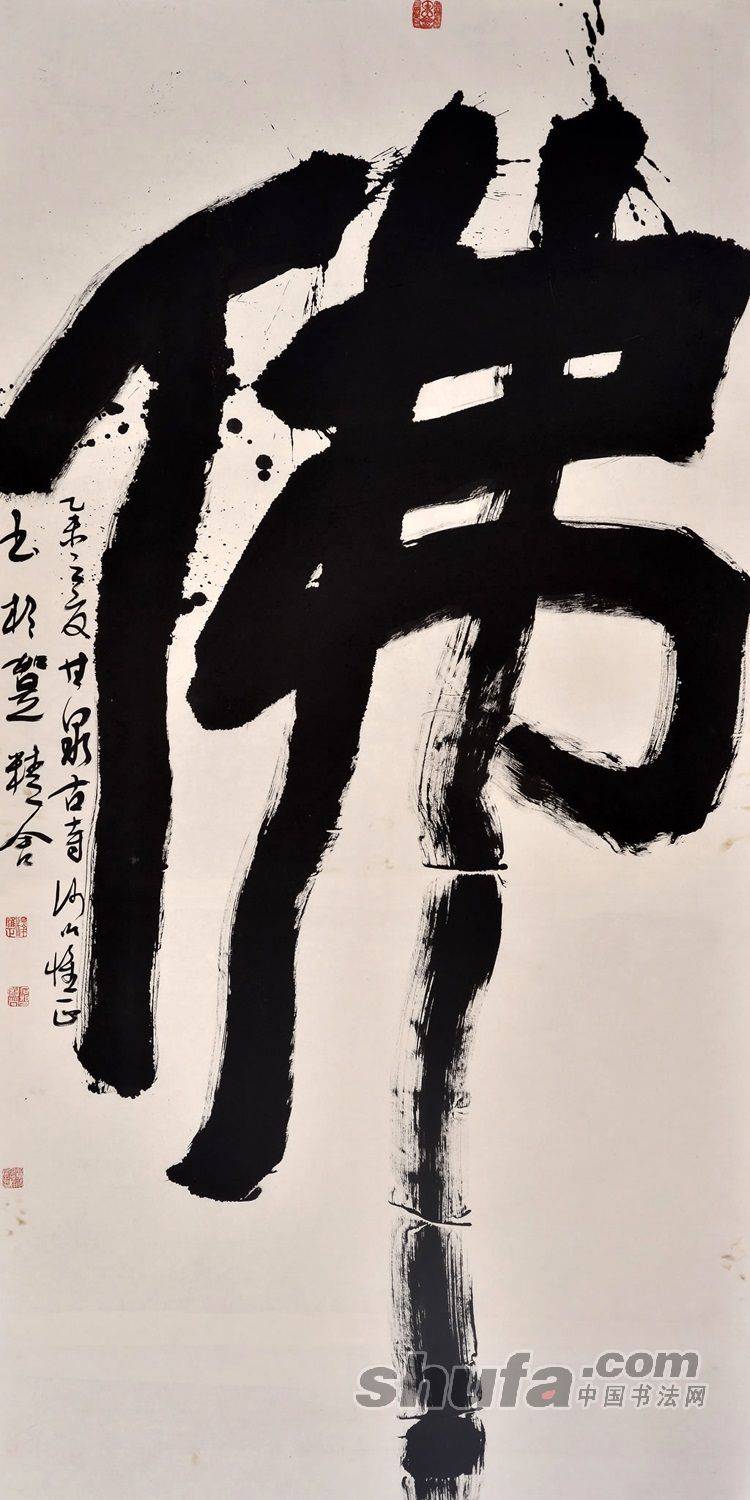 佛
乙未之夏甘泉古寺沙门惟正
书于慧精舍
shufa.com
中国书法网